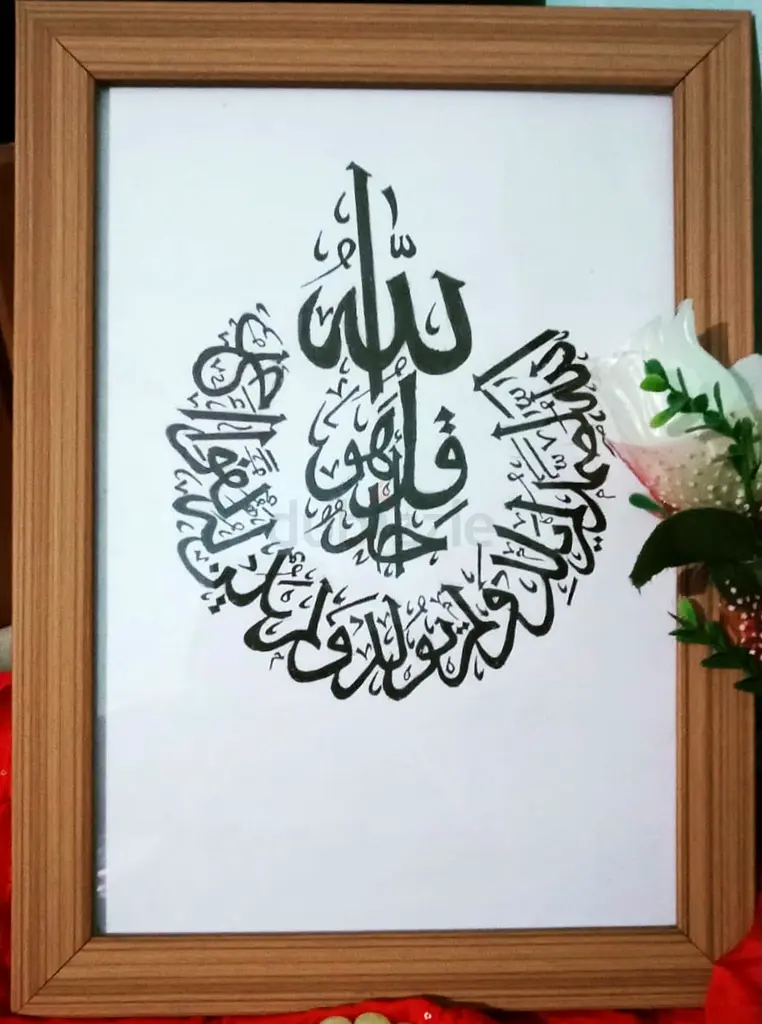 قُلْ هُوَ اللّٰهُ أَحَدٌ
اللّٰهُ الصَّمَدُ لَمْ يَلِدْ وَلَمْ يُولَدْ وَلَمْ يَكُن لَّهُ كُفُوًا أَحَدٌ
dubizzle